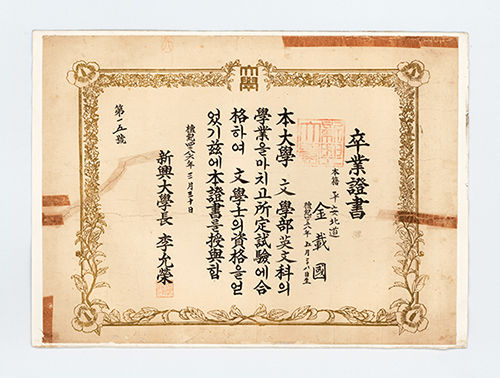 大學
卒業證書
本籍 平安北道
金載國
本大學 文 學部英文科의
學業을마치고所定試驗에合
格하여 文學士의資格을얻
었기玆에本證書를授與함
檀紀四二八六年 三月三十日
新興大學長 李允榮
第一五號